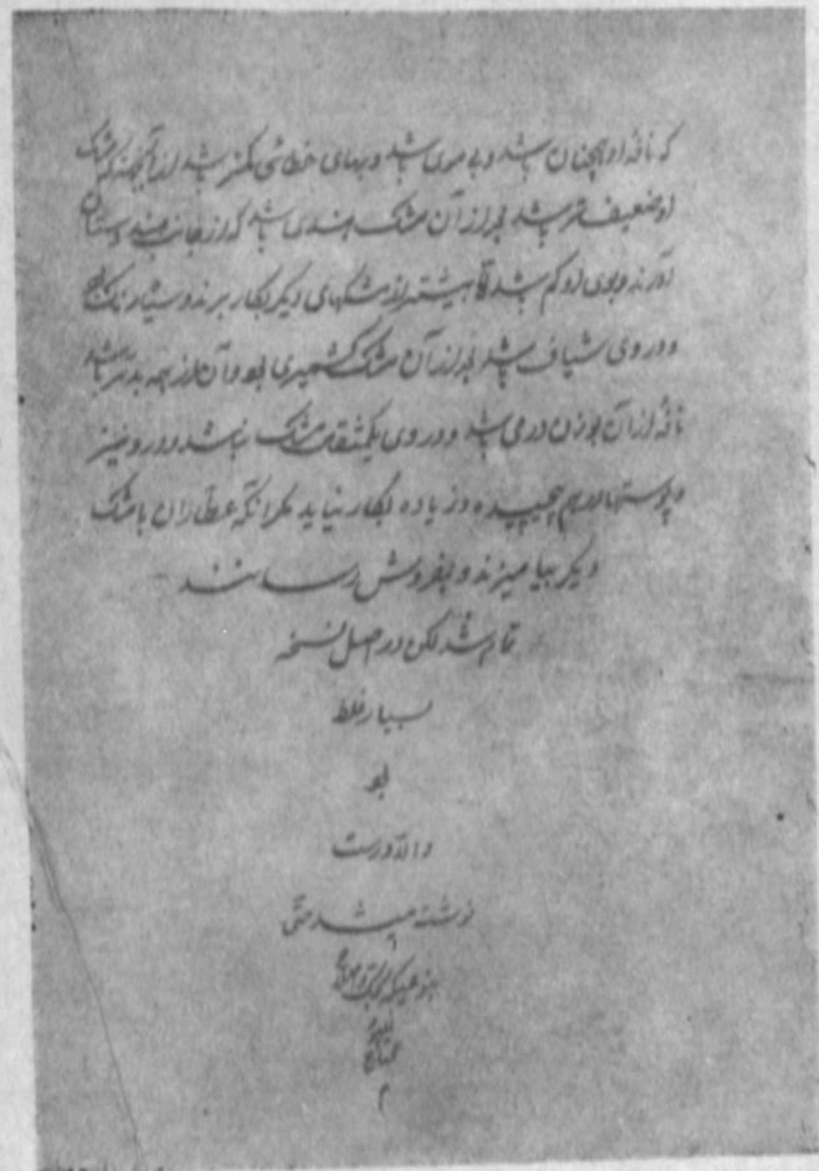 که نافهٔ او همچنان باشد و بی موی باشد و بهای خطائی کمتر باشد از آنجهة که مشک
او ضعیف تر باشد بعد از آن مشک هندی باشد که از جانب هندوستان
آورند و بوی او کم باشد تا بیشتر از مشکهای دیگر بکار برند و سیاه رنگ
و در وی شیاف باشد بعد از آن مشک کشمیری بود و آن از همه بدتر باشد
نافهٔ از آن بوزن درمی باشد و در وی یکمثقال مشک نباشد و درو نیز
پوستها در هم پیچیده و زیاده بکار نیاید مگر آنکه عطاران با مشک
دیگر بیامیزند و بفروش رسانند
تمام شد لکن در اصل نسخه
بسیار غلط
بود
والا درست
نوشته میشد حتی